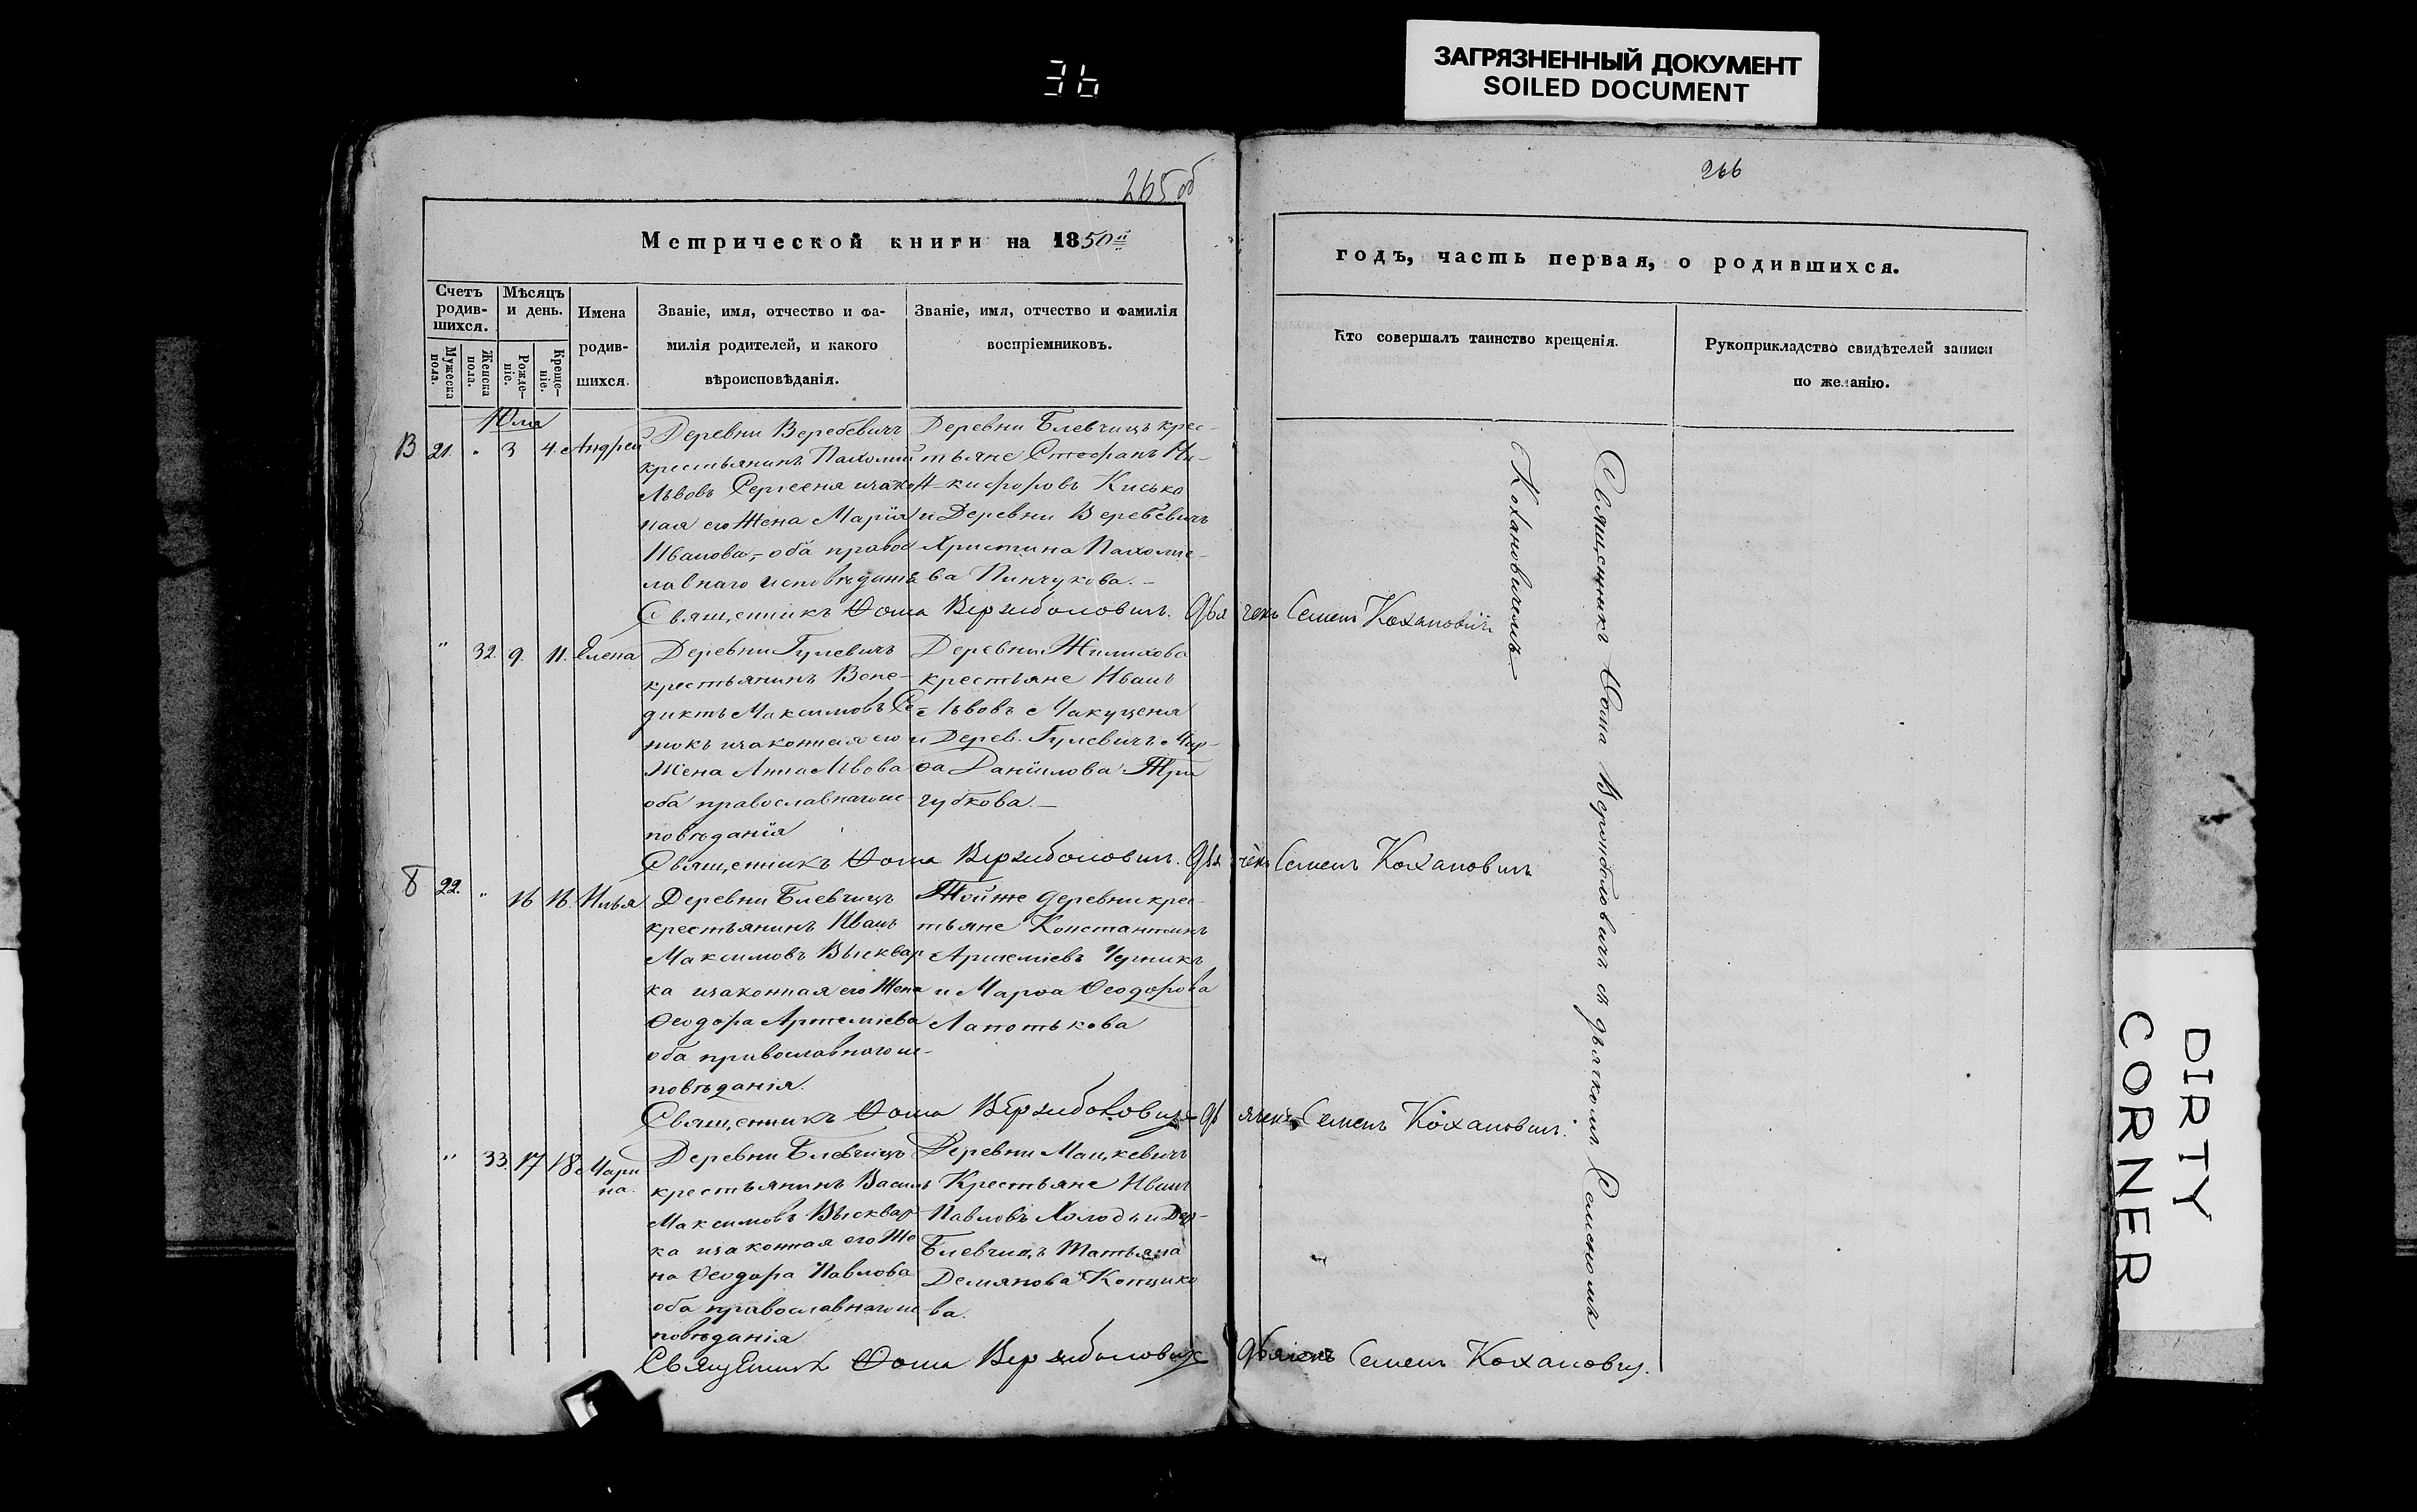 36
ЗАГРЯЗНЕННЫЙ ДОКУМЕНТ
SOILED DOCUMENT
265 об
266
Метрической книги на 1850й
годъ, часть первая, о родившихся.
Счетъ родив-шихся.
Мужеска пола.
Женска пола.
Мѣсяцъ и день.
Рожде-ніе.
Креще-ніе.
Имена
родив-
шихся.
Званіе, имя, отчество и фа-
милія родителей, и какого
вѣроисповѣданія.
Званіе, имя, отчество и фамилія
воспріемниковъ.
Кто совершалъ таинство крещенія.
Рукоприкладство свидѣтелей записи
по желанію.
Юля
В 21. " 3 4. Андрей
Деревни Веребевичъ
крестьянинъ Пахомій
Львовъ Сергееня изакон-
ная его Жена Марія
Иванова, оба право-
славнаго исповѣданія
Деревни Блевчицъ крес-
тьяне Стефанъ Ни-
кифоровъ Кисько
и Деревни Веребевичъ
Христина Пахоміе-
ва Пинчукова.
Священникъ Ѳома Вержболовичъ. Дьячекъ Семенъ Кохановичъ
" 32. 9. 11. Елена
Деревни Гулевичъ
крестьянинъ Вене-
диктъ Максимовъ Се-
нюкъ изаконная его
Жена Анна Львова
оба православнаго ис-
повѣданія
Деревни Жилихова
крестьяне Иванъ
Львовъ Макуценя
и Дерев. Гулевичъ Мар-
ѳа Даніилова Три
чубкова.
Священникъ Ѳома Вержболовичъ. Дьячекъ Семенъ Кохановичъ
Б 22. " 16 16. Илья
Деревни Блевчицъ
крестьянинъ Иванъ
Максимовъ Высквар
ка изаконная его Жена
Ѳеодора Артеміева
оба православнаго ис-
повѣданія.
Тойже деревни крес-
тьяне Константинъ
Артеміевъ Черникъ
и Марѳа Ѳеодорова
Лапотькова
Священникъ Ѳома Вержболовичъ Дьячекъ Семенъ Кохановичъ.
" 33. 17 18 Мари
на.
Деревни Блевчицъ
крестьянинъ Василь
Максимовъ Высквар
ка изаконная его Же
на Ѳеодора Павлова
оба православнаго ис-
повѣданія
Деревни Мацкевичъ
Крестьяне Иванъ
Павловъ Холодъ и Дер-
Блевчицъ Татьяна
Демянова Копцико
ва.
Священникъ Ѳома Вержболовичъ Дьячекъ Семенъ Кохановичъ.
Священникъ Ѳома Вержболовичъ съ дьячкомъ Семеномъ
Кохановичемъ
DIRTY
CORNER